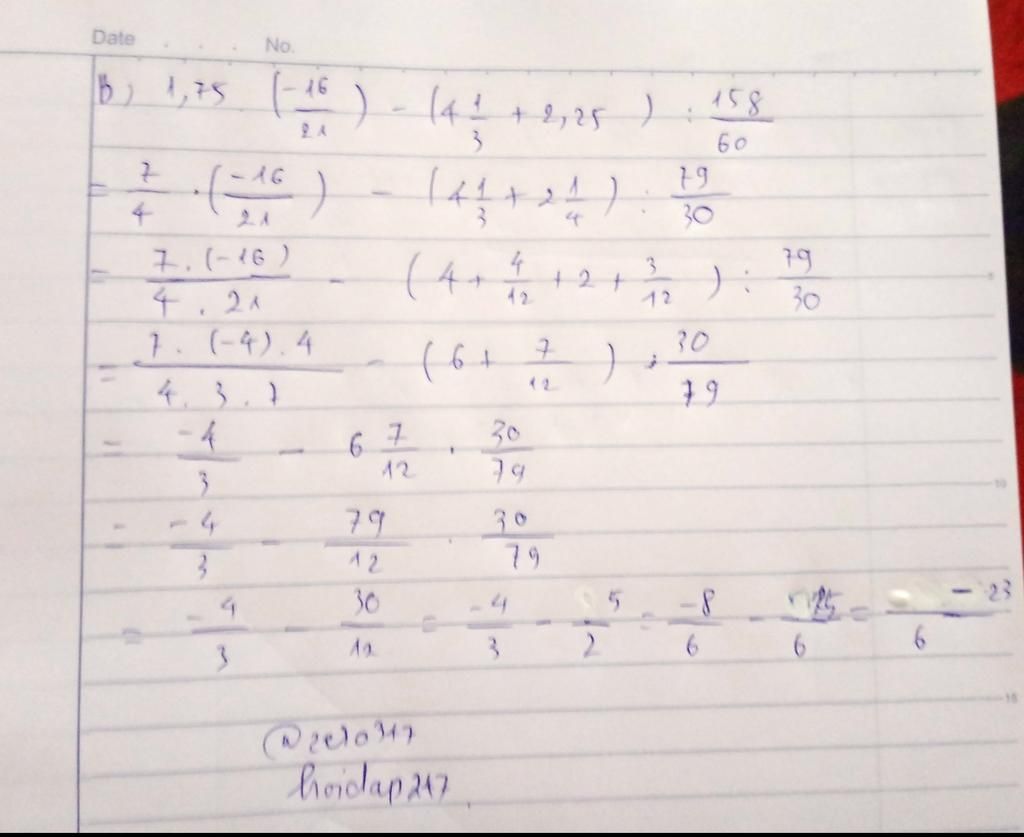 Date . . . No.
B) 1,75 (-16/21) - (4 1/3 + 2,25) : 158/60
= 7/4 . (-16/21) - (4 1/3 + 2 1/4) : 79/30
= 7 . (-16)/4 . 21 - (4 + 4/12 + 2 + 3/12) : 79/30
= 7 . (-4) . 4/4 . 3 . 7 - (6 + 7/12) . 30/79
= -4/3 - 6 7/12 . 30/79
= -4/3 - 79/12 . 30/79
= -4/3 - 30/12 = -4/3 - 5/2 = -8/6 - 15/6 = -23/6
hoidap247
10
15